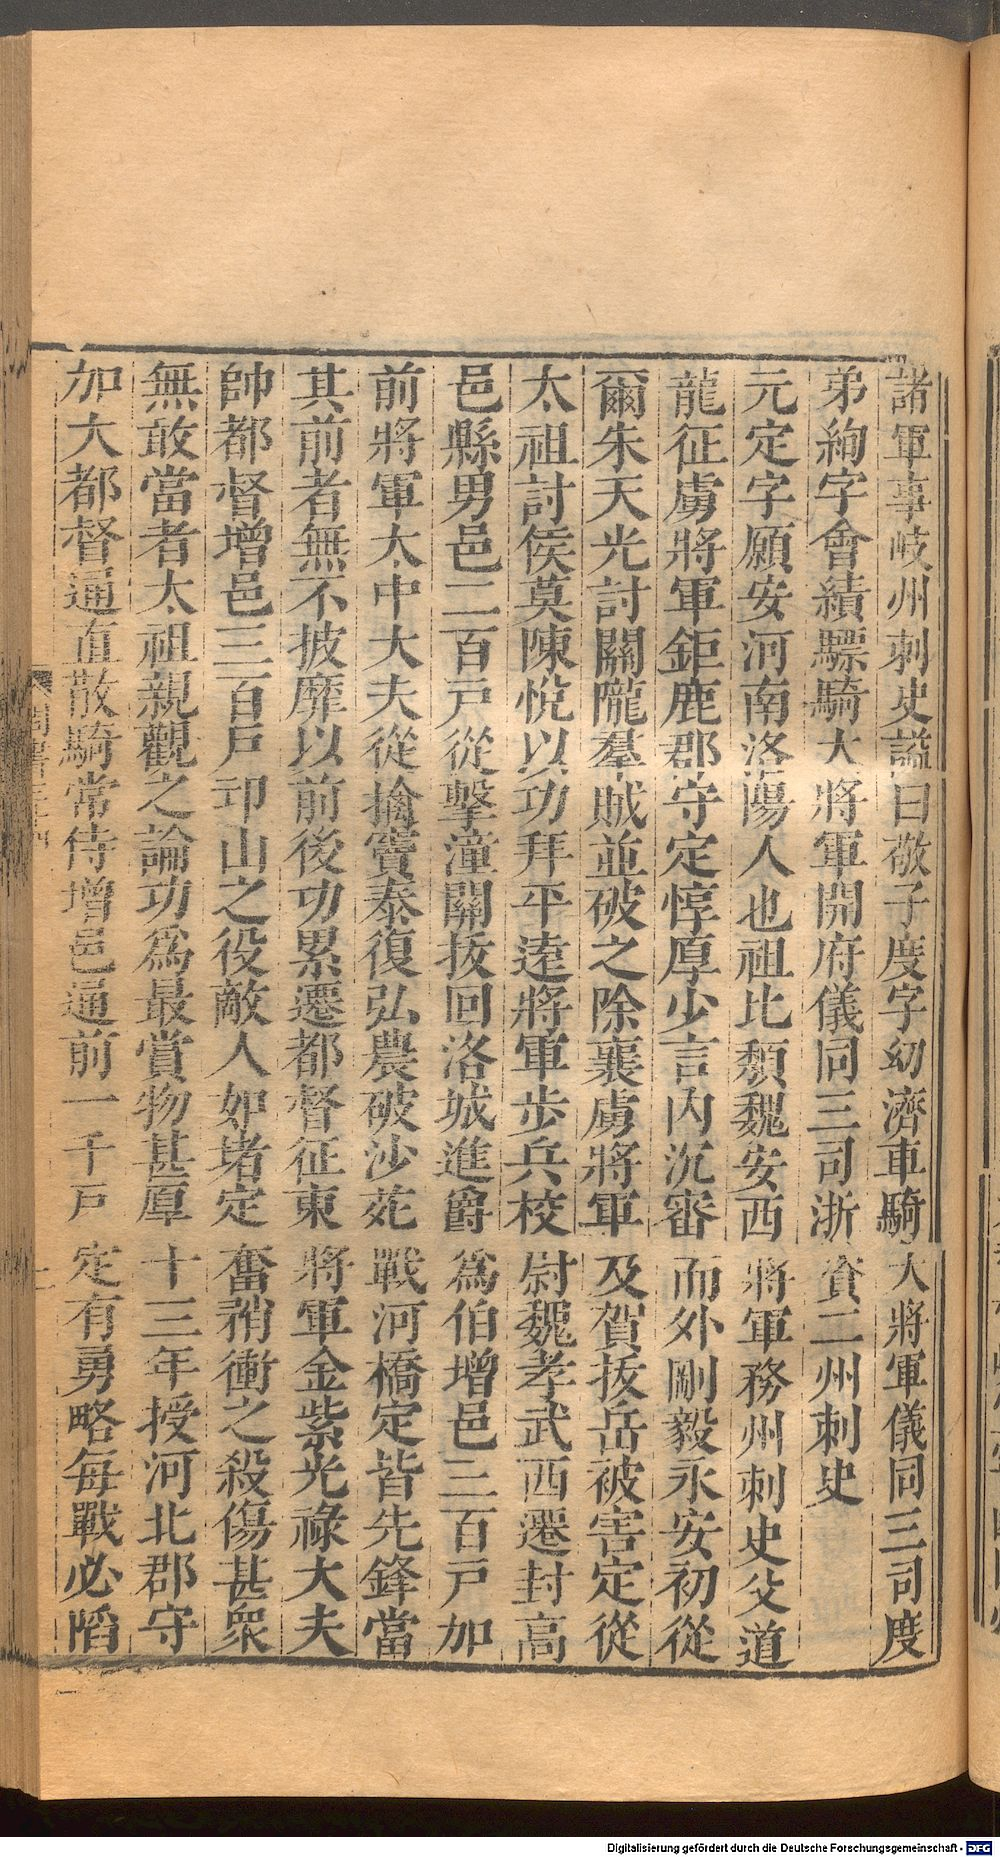 諸軍事岐州刺史諡曰敬子度字幼濟車騎大將軍儀同三司度
弟絢字會績驃騎大將軍開府儀同三司浙資二州刺史
元定字願安河南洛陽人也祖比頹魏安西將軍務州刺史父道
龍征虜將軍鉅鹿郡守定惇厚少言內沉審而外剛毅永安初從
爾朱天光討關隴羣賊並破之除襄虜將軍及賀拔岳被害定從
太祖討侯莫陳悅以功拜平遠將軍步兵校尉魏孝武西遷封高
邑縣男邑二百戸從擊潼關拔回洛城進爵為伯增邑三百戸加
前將軍太中大夫從擒竇泰復弘農破沙苑戰河橋定皆先鋒當
其前者無不披靡以前後功累遷都督征東將軍金紫光祿大夫
帥都督增邑三百戸邙山之役敵人如堵定奮矟衝之殺傷甚衆
無敢當者太祖親觀之論功爲最賞物甚厚十三年授河北郡守
加大都督通直散騎常侍增邑通前一千戸定有勇略每戰必陷
Digitalisierung gefördert durch die Deutsche Forschungsgemeinschaft - DFG